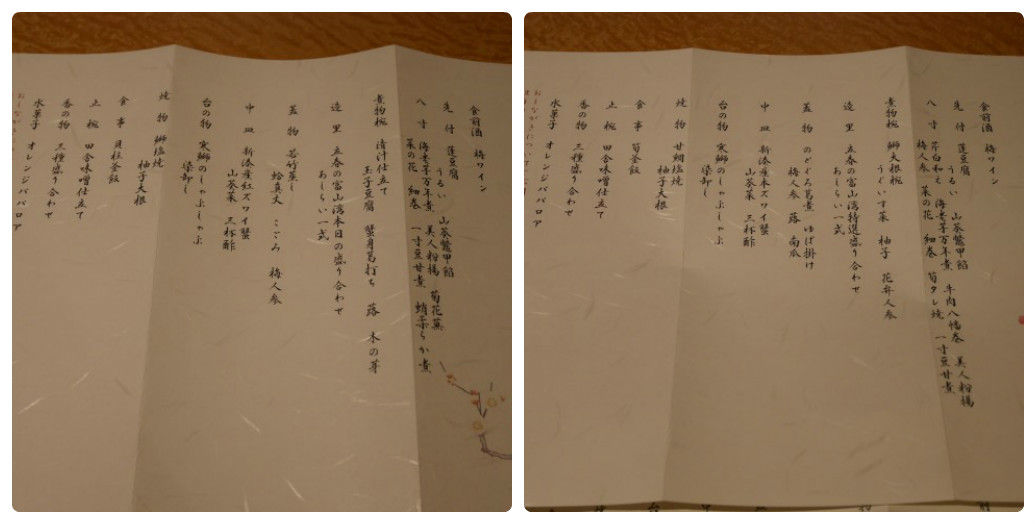 食前酒 梅ワイン
先付 蓮豆腐
うるい 山菜鼈甲餡
八寸 海老芋万年煮 美人粉揚 菊花蕪
菜の花 細巻 一寸豆甘煮 蛸柔らか煮
煮物椀 清汁仕立て
玉子豆腐 蟹身葛打ち 蕗 木の芽
造里 立春の富山湾本日の盛り合わせ
あしらい一式
蓋物 若竹蒸し
蛤真丈 こごみ 梅人参
中皿 新湊産紅ズワイ蟹
山菜菜 三杯酢
台の物 寒鰤のしゃぶしゃぶ
染卸し
焼物 鰤塩焼
柚子大根
食事 貝柱釜飯
止椀 田舎味噌仕立て
香の物 三種盛り合わせ
水菓子 オレンジババロア
食前酒 梅ワイン
先付 蓮豆腐
うるい 山菜鼈甲餡
八寸 芹白和え 海老芋万年煮 牛肉八幡巻 美人粉揚
梅人参 菜の花 細巻 筍タレ焼 一寸豆甘煮
煮物椀 鰤大根椀
うぐいす菜 柚子 花弁人参
造里 立春の富山湾特選盛り合わせ
あしらい一式
蓋物 のどぐろ葛煮 ゆば掛け
梅人参 蕗 南瓜
中皿 新湊産本ズワイ蟹
山菜菜 三杯酢
台の物 寒鰤のしゃぶしゃぶ
染卸し
焼物 甘鯛塩焼
柚子大根
食事 筍釜飯
止椀 田舎味噌仕立て
香の物 三種盛り合わせ
水菓子 オレンジババロア